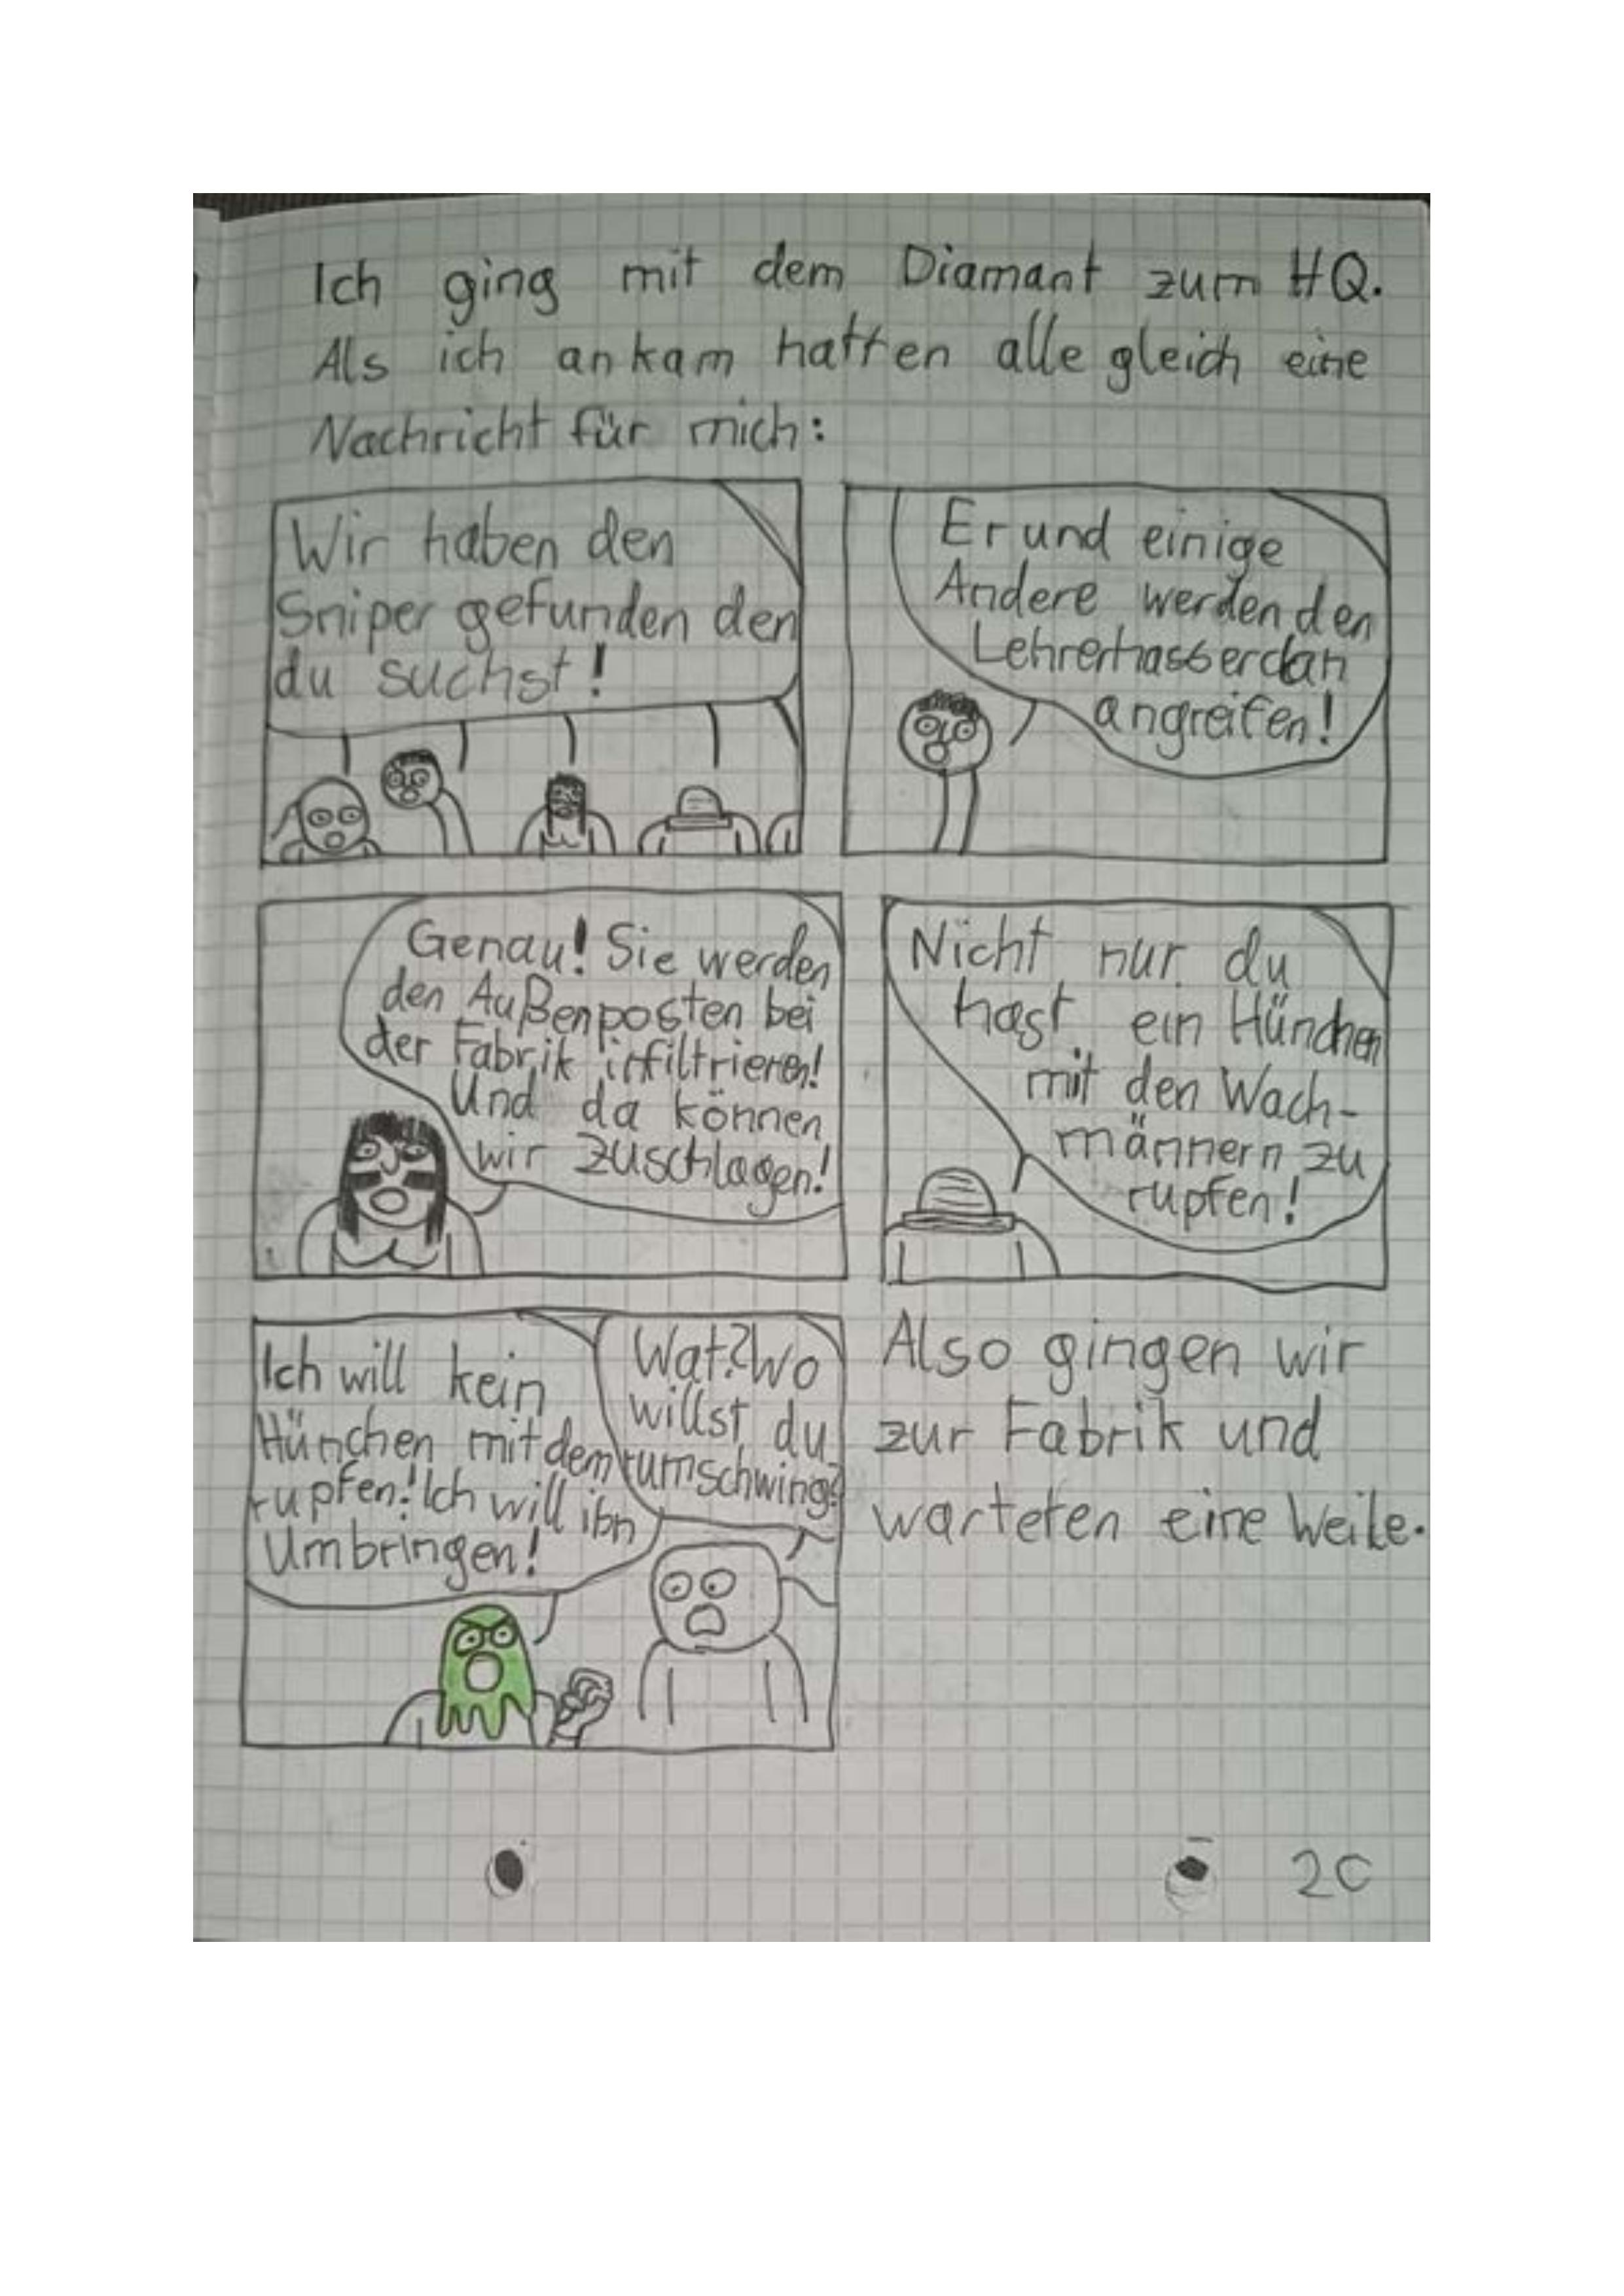 Ich ging mit dem Diamant zum HQ.
Als ich ankam hatten alle gleich eine
Nachricht für mich:
Wir haben den
Sniper gefunden den
du suchst!
Er und einige
Andere werden den
Lehrerhasserclan
angreifen!
Genau! Sie werden
den Außenposten bei
der Fabrik infiltrieren!
Und da können
wir zuschlagen!
Nicht nur du
hast ein Hünchen
mit den Wach-
männern zu
rupfen!
Ich will kein
Hünchen mit dem
rupfen! Ich will ihn
Umbringen!
Wat? Wo
willst du
rumschwing?
Also gingen wir
zur Fabrik und
warteten eine Weile.
20